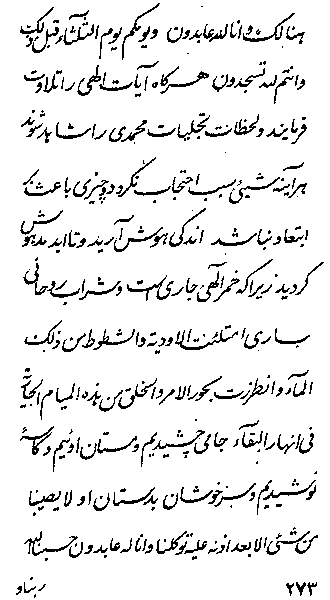 هنالك و انا لله عابدون و یومکم یوم الثلثآء قبل ذلك
و انتم لله تسجدون هرگاه آیات الهی را تلاوت
فرمایند و لحظات تجلیات محمدی را مشاهد شوند
هرآینه شیئی سبب احتجاب نگردد و چیزی باعث
ابتعاد نباشد اندکی هوش آرید و تا ابد مدهوش
گردید زیرا که خمر الهی جاری است و شراب روحانی
ساری امتلئت الاودیة و الشطوط من ذلك
المآء و انطرزت بحور الامر و الخلق من هذه المیاه الجاریة
فی انهار البقآء جامی چشیدیم و مستان اوئیم و کاسهٔ
نوشیدیم و سرخوشان بدستان او لا یصیبنا
من شئی الا بعد اذنه علیه توکلنا و انا له عابدون حسبنا الله
۲۷۳ ربنا و